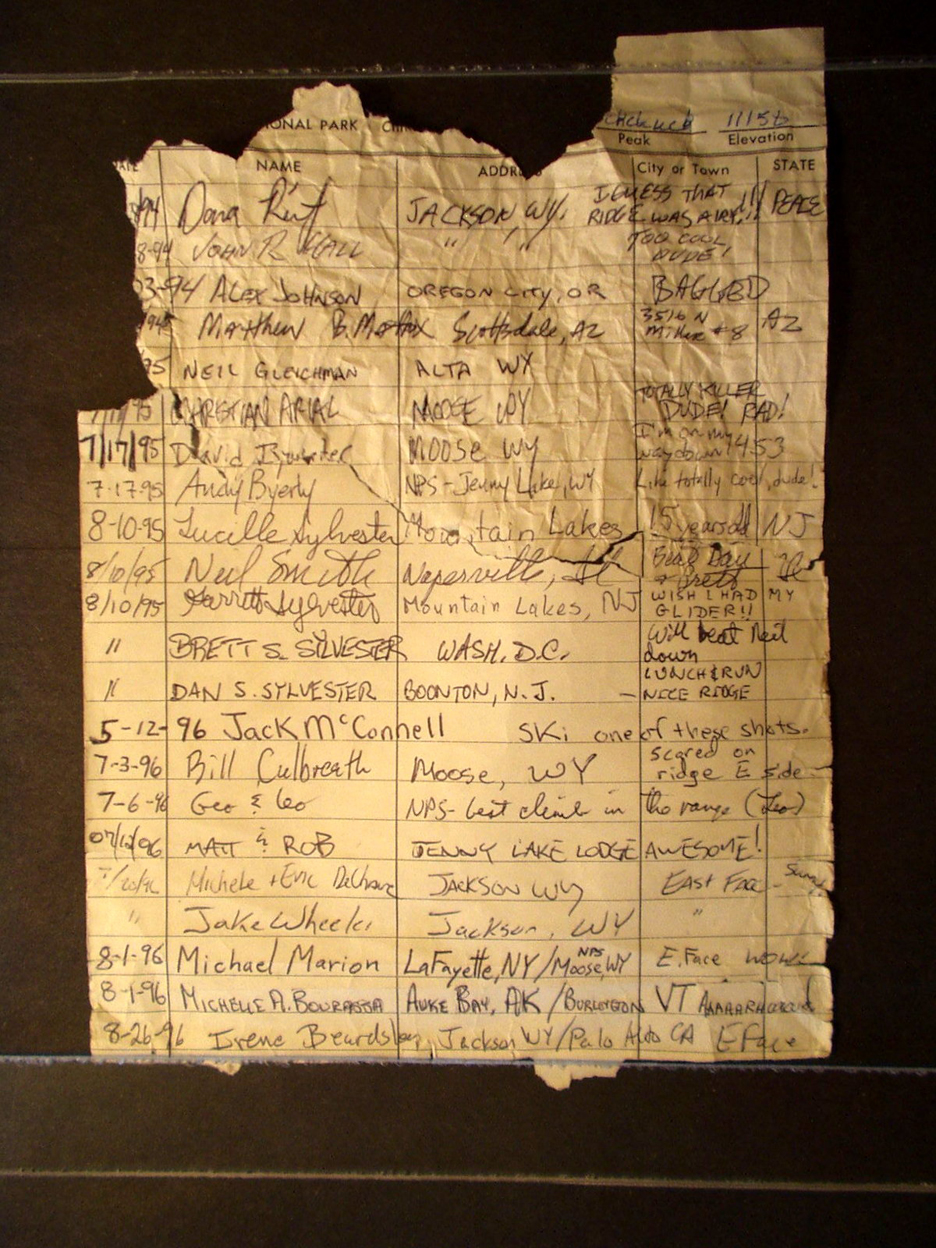 IONAL PARK
11156
Peak Elevation
NAME ADDR City or Town STATE
94 Dana JACKSON, WY. I GUESS THAT RIDGE WAS AIRY!!! PEACE
8-94 JOHN R. " " TOO COOL DUDE!
3-94 ALEX JOHNSON OREGON CITY, OR BAGGED
Matthew B. Scottsdale, AZ 3516 N Miller #8 AZ
95 NEIL GLEICHMAN ALTA WY
95 CHRISTIAN ARIAL MOOSE WY TOTALLY KILLER DUDE! RAD!
7/17/95 David MOOSE WY I'm on my way down 1453
7-17-95 Andy Byerly NPS - Jenny Lake, WY Like totally cool, dude!
8-10-95 Lucille Sylvester Mountain Lakes 15 years old NJ
8/10/95 Neil Smith Naperville, IL Bear Bay & Brett IL
8/10/95 Garrett Sylvester Mountain Lakes, NJ WISH I HAD MY GLIDER!!
" BRETT S. SYLVESTER WASH, D.C. Will beat Neil down
" DAN S. SYLVESTER BOONTON, N.J. — LUNCH & RUN NICE RIDGE
5-12-96 Jack McConnell Ski one of these shots.
7-3-96 Bill Culbreath Moose, WY scared on ridge E side
7-6-96 Geo & Leo NPS- best climb in the range (Leo)
07/12/96 MATT & ROB JENNY LAKE LODGE AWESOME!
7/20/96 Michele + Eric JACKSON WY EAST Face -
" Jake Wheeler Jackson, WY "
8-1-96 Michael Marion LaFayette, NY / NPS Moose, WY E. Face wow!
8-1-96 MICHELLE A. BOURASSA AUKE BAY, AK / BURLINGTON VT
8-26-96 Irene Beardsley Jackson WY/Palo Alto CA E Face